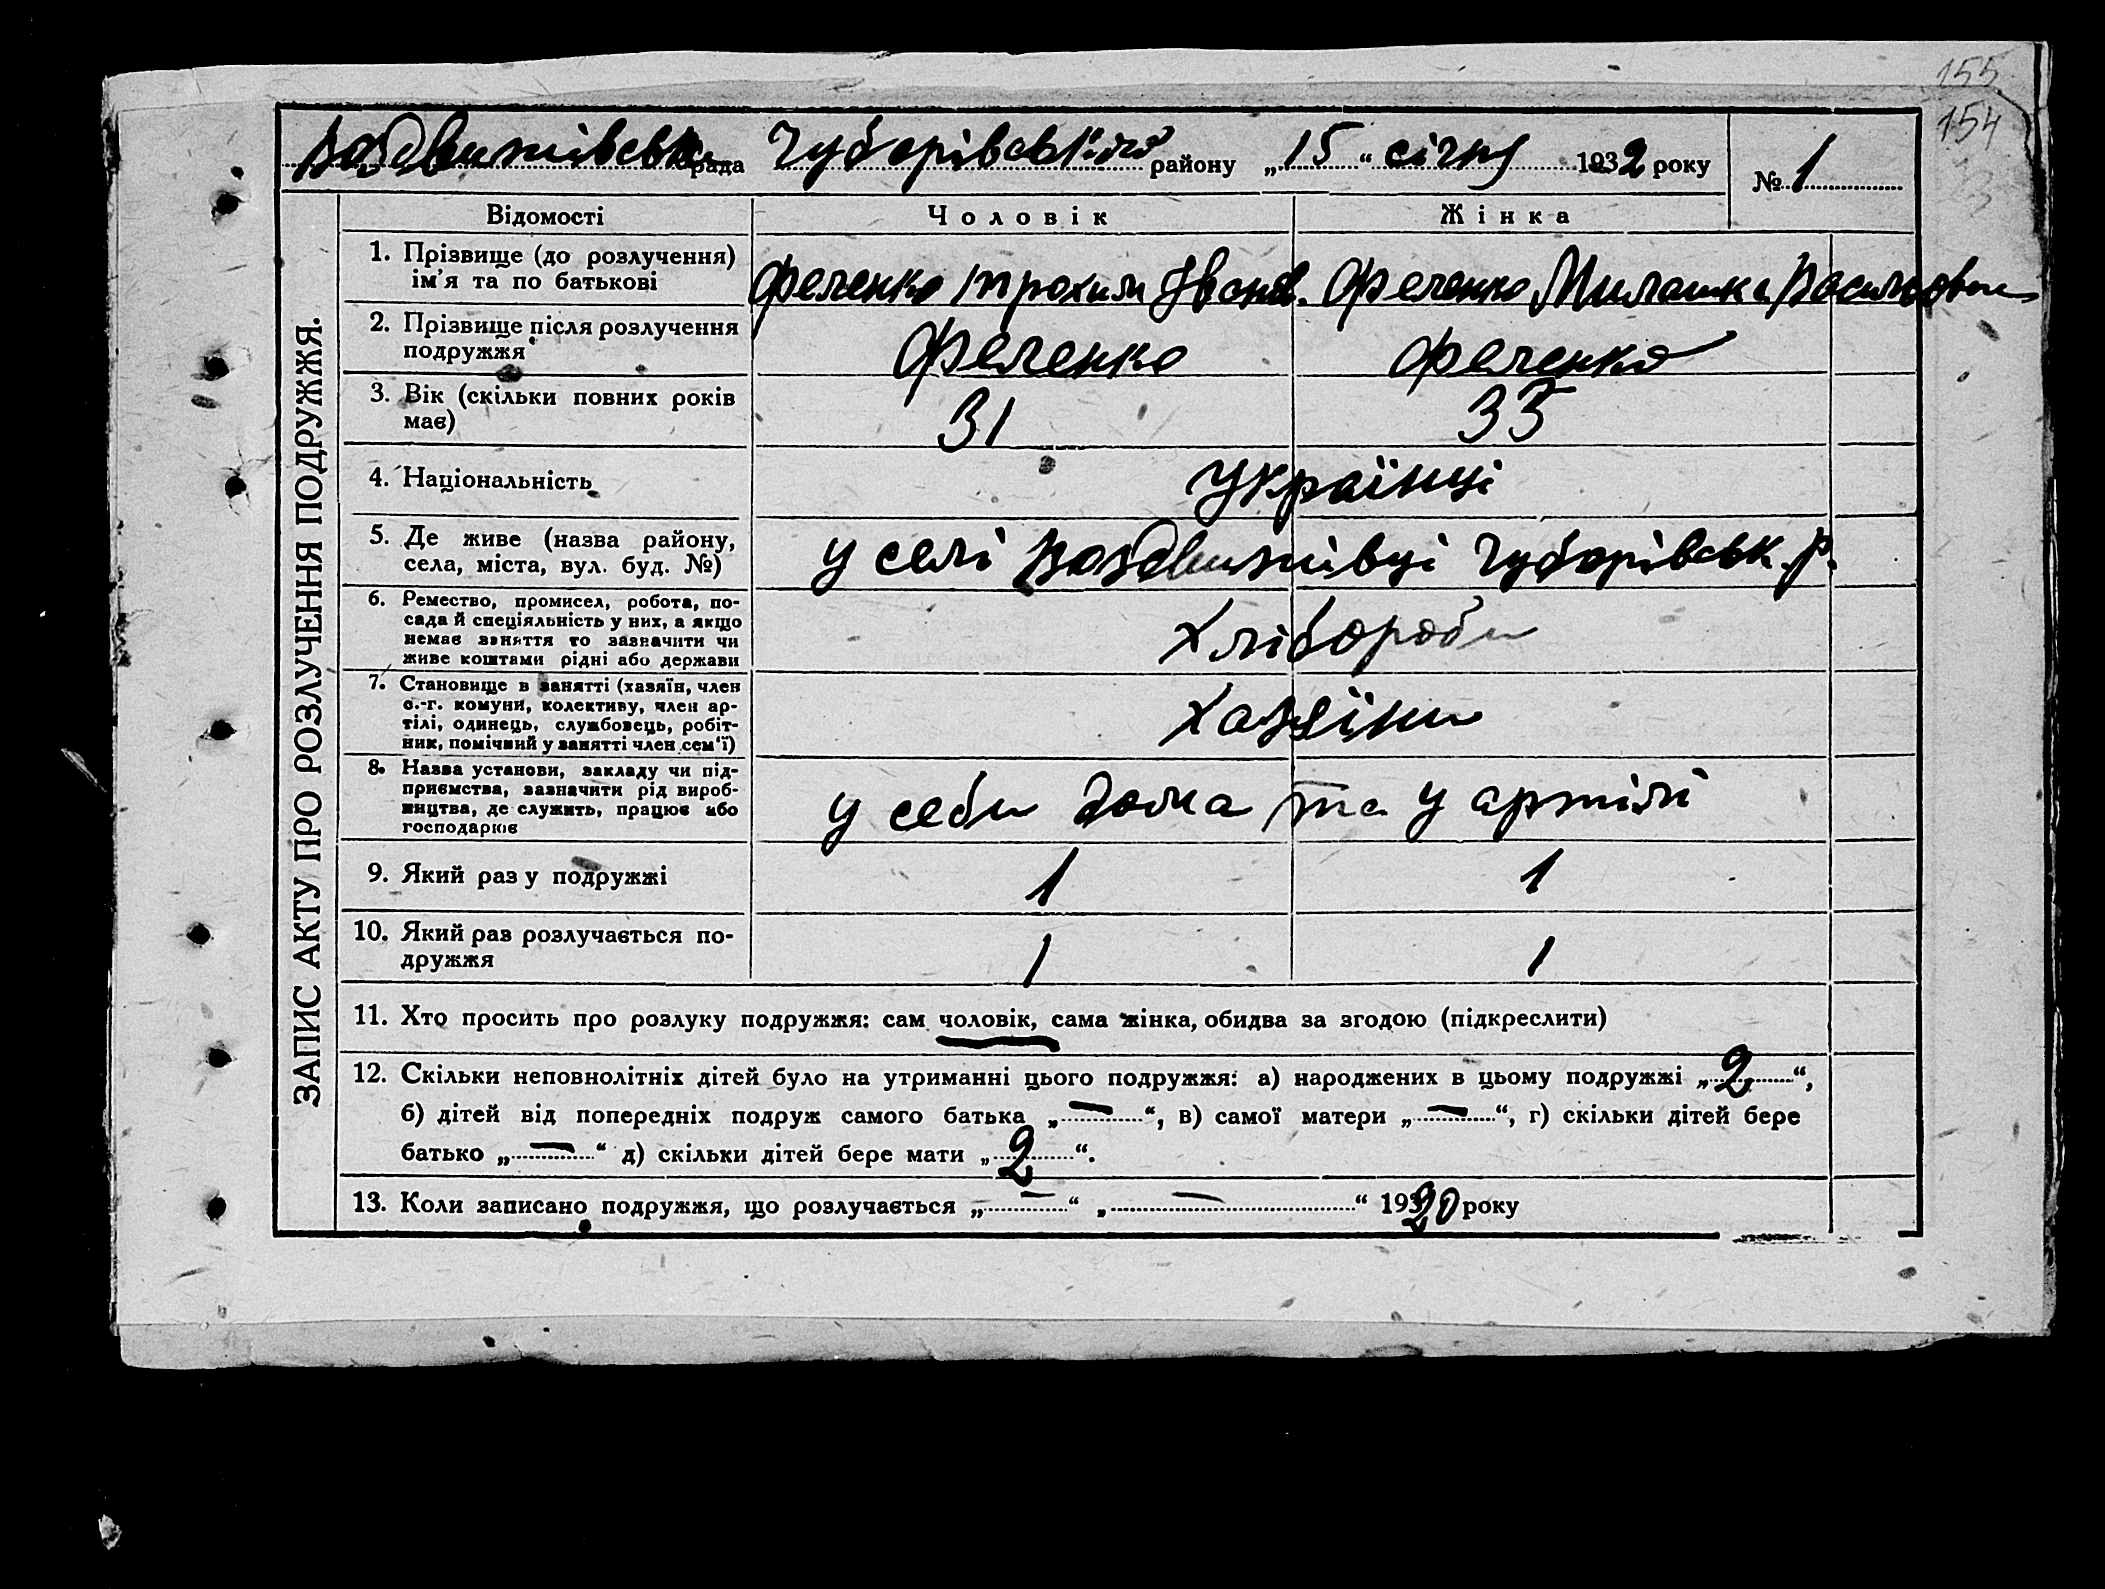 155
154
Воздвижівська рада Чубарівського району „15“ січня 1932 року № 1
ЗАПИС АКТУ ПРО РОЗЛУЧЕННЯ ПОДРУЖЖЯ.
Відомості Чоловік Жінка
1. Прізвище (до розлучення)
ім'я та по батькові
Феленко Трохим Іванов. Феленко Милашка Васильовн
2. Прізвище після розлучення
подружжя
Феленко Феленко
3. Вік (скільки повних років
має)
31 35
4. Національність
Українці
5. Де живе (назва району,
села, міста, вул. буд. №)
у селі Воздвижівці Чубарівськ. р.
6. Ремество, промисел, робота, по-
сада й спеціяльність у них, а якщо
немає заняття то зазначити чи
живе коштами рідні або держави
Хлібороби
7. Становище в занятті (хазяїн, член
с.-г. комуни, колективу, член ар-
тілі, одинець, службовець, робіт-
ник, помічний у занятті член сем'ї)
Хазяїни
8. Назва установи, закладу чи під-
приємства, зазначити рід вироб-
ництва, де служить, працює або
господарює
у себи дома та у артілі
9. Який раз у подружжі
1 1
10. Який раз розлучається по-
дружжя
1 1
11. Хто просить про розлуку подружжя: сам чоловік, сама жінка, обидва за згодою (підкреслити)
12. Скільки неповнолітніх дітей було на утриманні цього подружжя: а) народжених в цьому подружжі „2“,
б) дітей від попередніх подруж самого батька „—“, в) самої матери „—“, г) скільки дітей бере
батько „—“ д) скільки дітей бере мати „2“.
13. Коли записано подружжя, що розлучається „—“ „—“ 1920 року